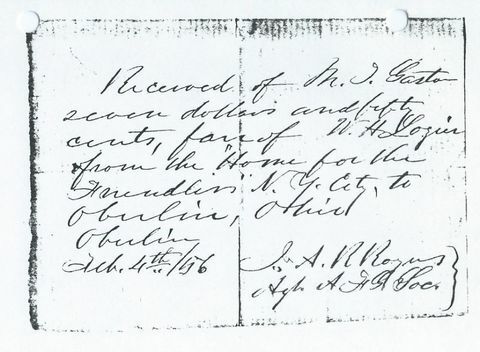 Received of M. I. Gaston
seven dollars and fifty
cents, fare of W. H. Lozier
from the "Home for the
Friendless" N. Y. City, to
Oberlin, Ohio
Oberlin
Feb. 4th /56
J. A. R. Rogers
Agt A F G Soc.